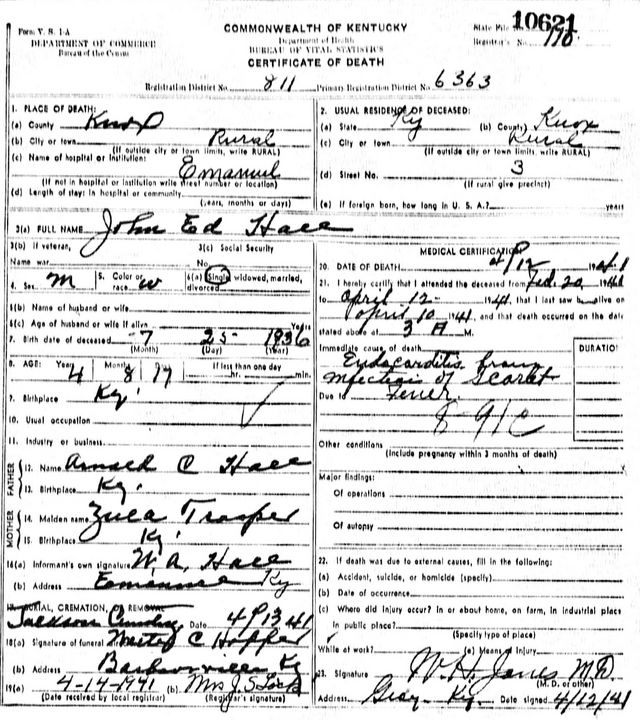 Form V. S. 1-A
DEPARTMENT OF COMMERCE
Bureau of the Census
COMMONWEALTH OF KENTUCKY
Department of Health
BUREAU OF VITAL STATISTICS
CERTIFICATE OF DEATH
State File No. 10621
Registrar's No. 110
Registration District No. 811 Primary Registration District No. 6363
1. PLACE OF DEATH:
(a) County Knox
(b) City or town Rural
(If outside city or town limits, write RURAL)
(c) Name of hospital or institution: Emanuel
(If not in hospital or institution write street number or location)
(d) Length of stay: in hospital or community
(years, months or days)
2. USUAL RESIDENCE OF DECEASED:
(a) State Ky (b) County Knox
(c) City or town Rural
(If outside city or town limits, write RURAL)
(d) Street No. 3
(If rural give precinct)
(e) If foreign born, how long in U. S. A.? years
3(a) FULL NAME John Ed Hall
3(b) If veteran,
Name war
3(c) Social Security
No.
4. Sex M 5. Color or race W 6(a) Single, widowed, married, divorced
6(b) Name of husband or wife
6(c) Age of husband or wife if alive Years
7. Birth date of deceased 7 25 1936
(Month) (Day) (Year)
8. AGE: Years 4 Months 8 Days 17 If less than one day
hr. min.
9. Birthplace Ky.
10. Usual occupation
11. Industry or business
FATHER
12. Name Arnold C Hall
13. Birthplace Ky.
MOTHER
14. Maiden name Zula Trosper
15. Birthplace Ky.
16(a) Informant's own signature W. A. Hall
(b) Address Emanuel Ky
17. BURIAL, CREMATION, OR REMOVAL
Jackson Cemetery Date 4/13 41
18(a) Signature of funeral C Hopper
(b) Address Barbourville Ky
19(a) 4-14-1941 (b) Mrs J. S. Lock
(Date received by local registrar) (Registrar's signature)
MEDICAL CERTIFICATION
20. DATE OF DEATH 12 1941
21. I hereby certify that I attended the deceased from Feb. 20, 1941
to April 12- 1941, that I last saw alive on
April 10 1941, and that death occurred on the date
stated above at 3 A M.
Immediate cause of death
Endocarditis from
infection of Scarlet
Due to Fever.
DURATION
8-91C
Other conditions
(Include pregnancy within 3 months of death)
Major findings:
Of operations
Of autopsy
22. If death was due to external causes, fill in the following:
(a) Accident, suicide, or homicide (specify)
(b) Date of occurrence
(c) Where did injury occur? In or about home, on farm, in industrial place
in public place?
(Specify type of place)
While at work? (e) Means of Injury
23. Signature W. H. Jones M.D.
(M. D. or other)
Address Gray, Ky. Date signed 4/12/41